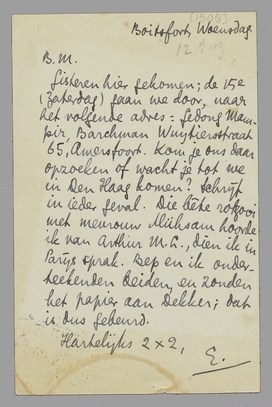 Boitsfort, Woensdag
[1936]
12 Aug
B. M.
Gisteren hier gekomen; de 15e
(Zaterdag) gaan we door, naar
het volgende adres = Gedong Mam-
pir, Barchman Wuytiersstraat
65, Amersfoort. Kom je ons daar
opzoeken of wacht je tot we
in Den Haag komen? Schrijf
in ieder geval. Die bête rotzooi
met mevrouw Mühsam hoorde
ik van Arthur M. L., dien ik in
Parijs sprak. Bep en ik onder-
teekenden beiden, en zonden
het papier aan Dekker; dat
is dus gebeurd.
Hartelijks 2 x 2,
E.